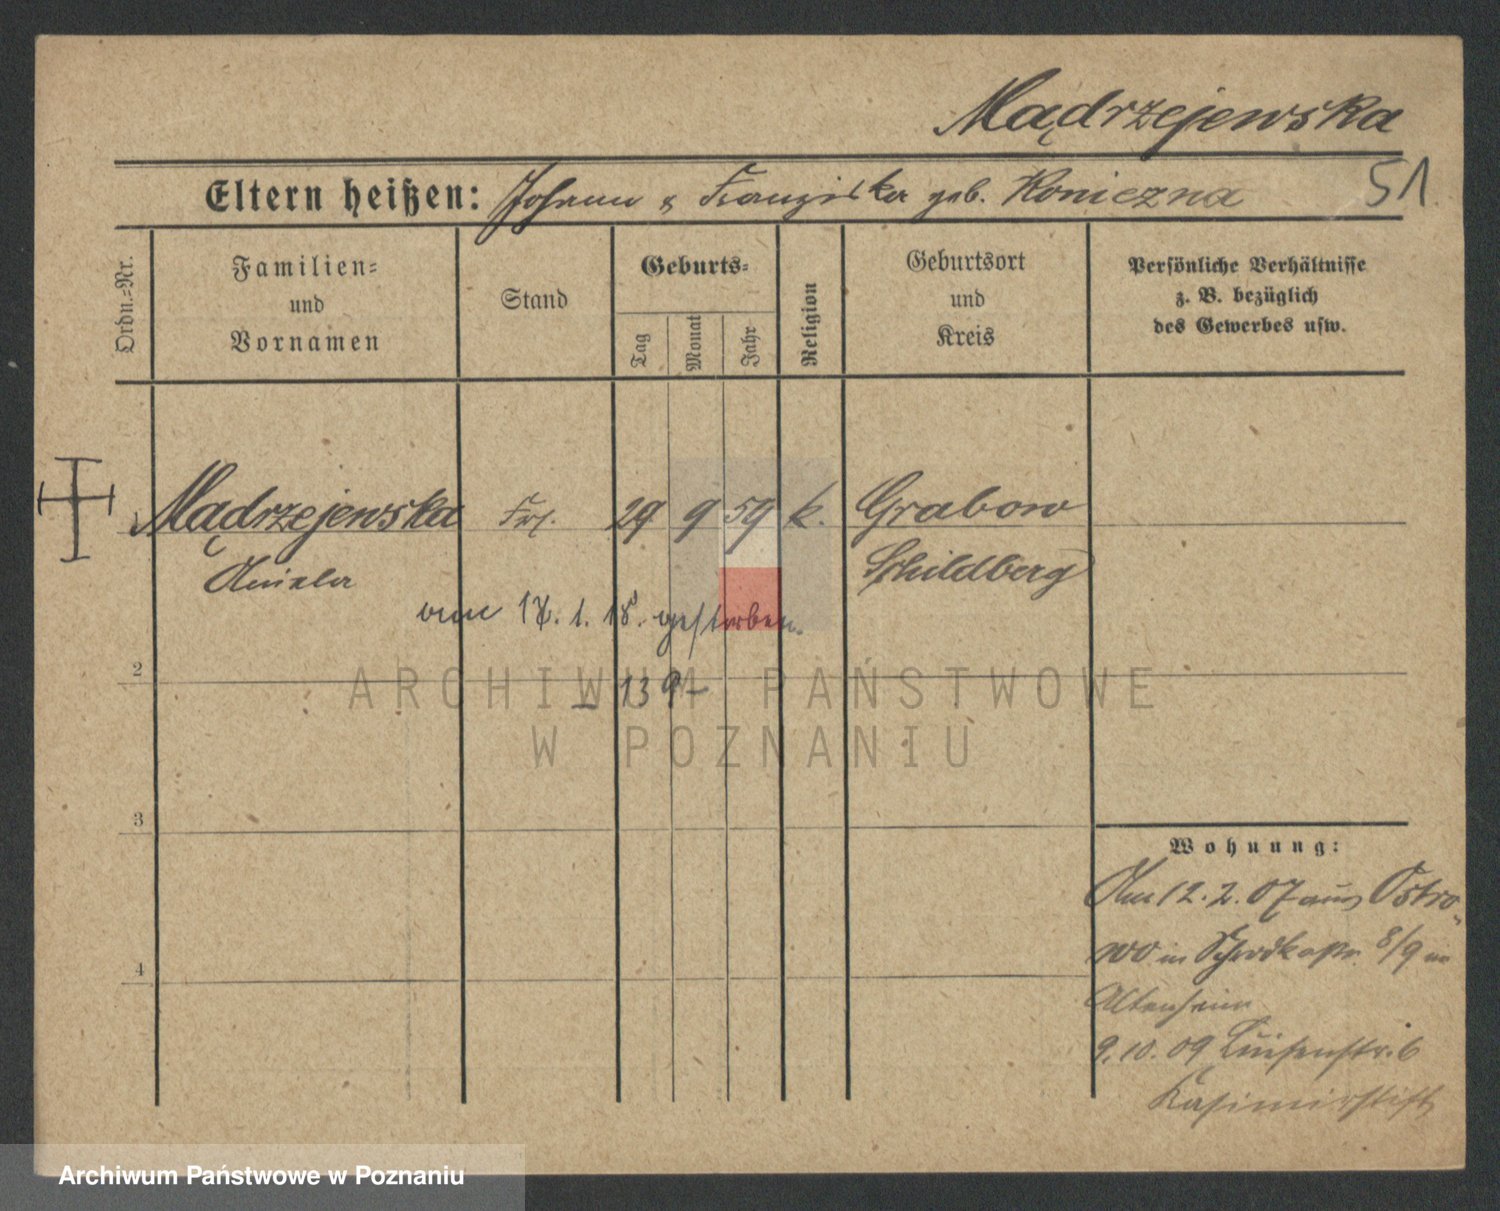 Mądrzejewska
Eltern heißen: Johann & Franziska geb. Koniczna
51
Ordn.-Nr.
Familien-
und
Vornamen
Stand
Geburts-
Tag
Monat
Jahr
Religion
Geburtsort
und
Kreis
Persönliche Verhältnisse
z. B. bezüglich
des Gewerbes usw.
1 Mądrzejewska Frl. 29 9 59 k. Grabow
Aniela Schildberg
am 17. 1. 18. gestorben.
2
139
ARCHIWUM PAŃSTWOWE
W POZNANIU
3
Wohnung:
Am 12.2.07 aus Ostro-
wo in 8/9 in
4
Altenheim
9.10.09 Luisenstr. 6
Kasimirstift
Archiwum Państwowe w Poznaniu